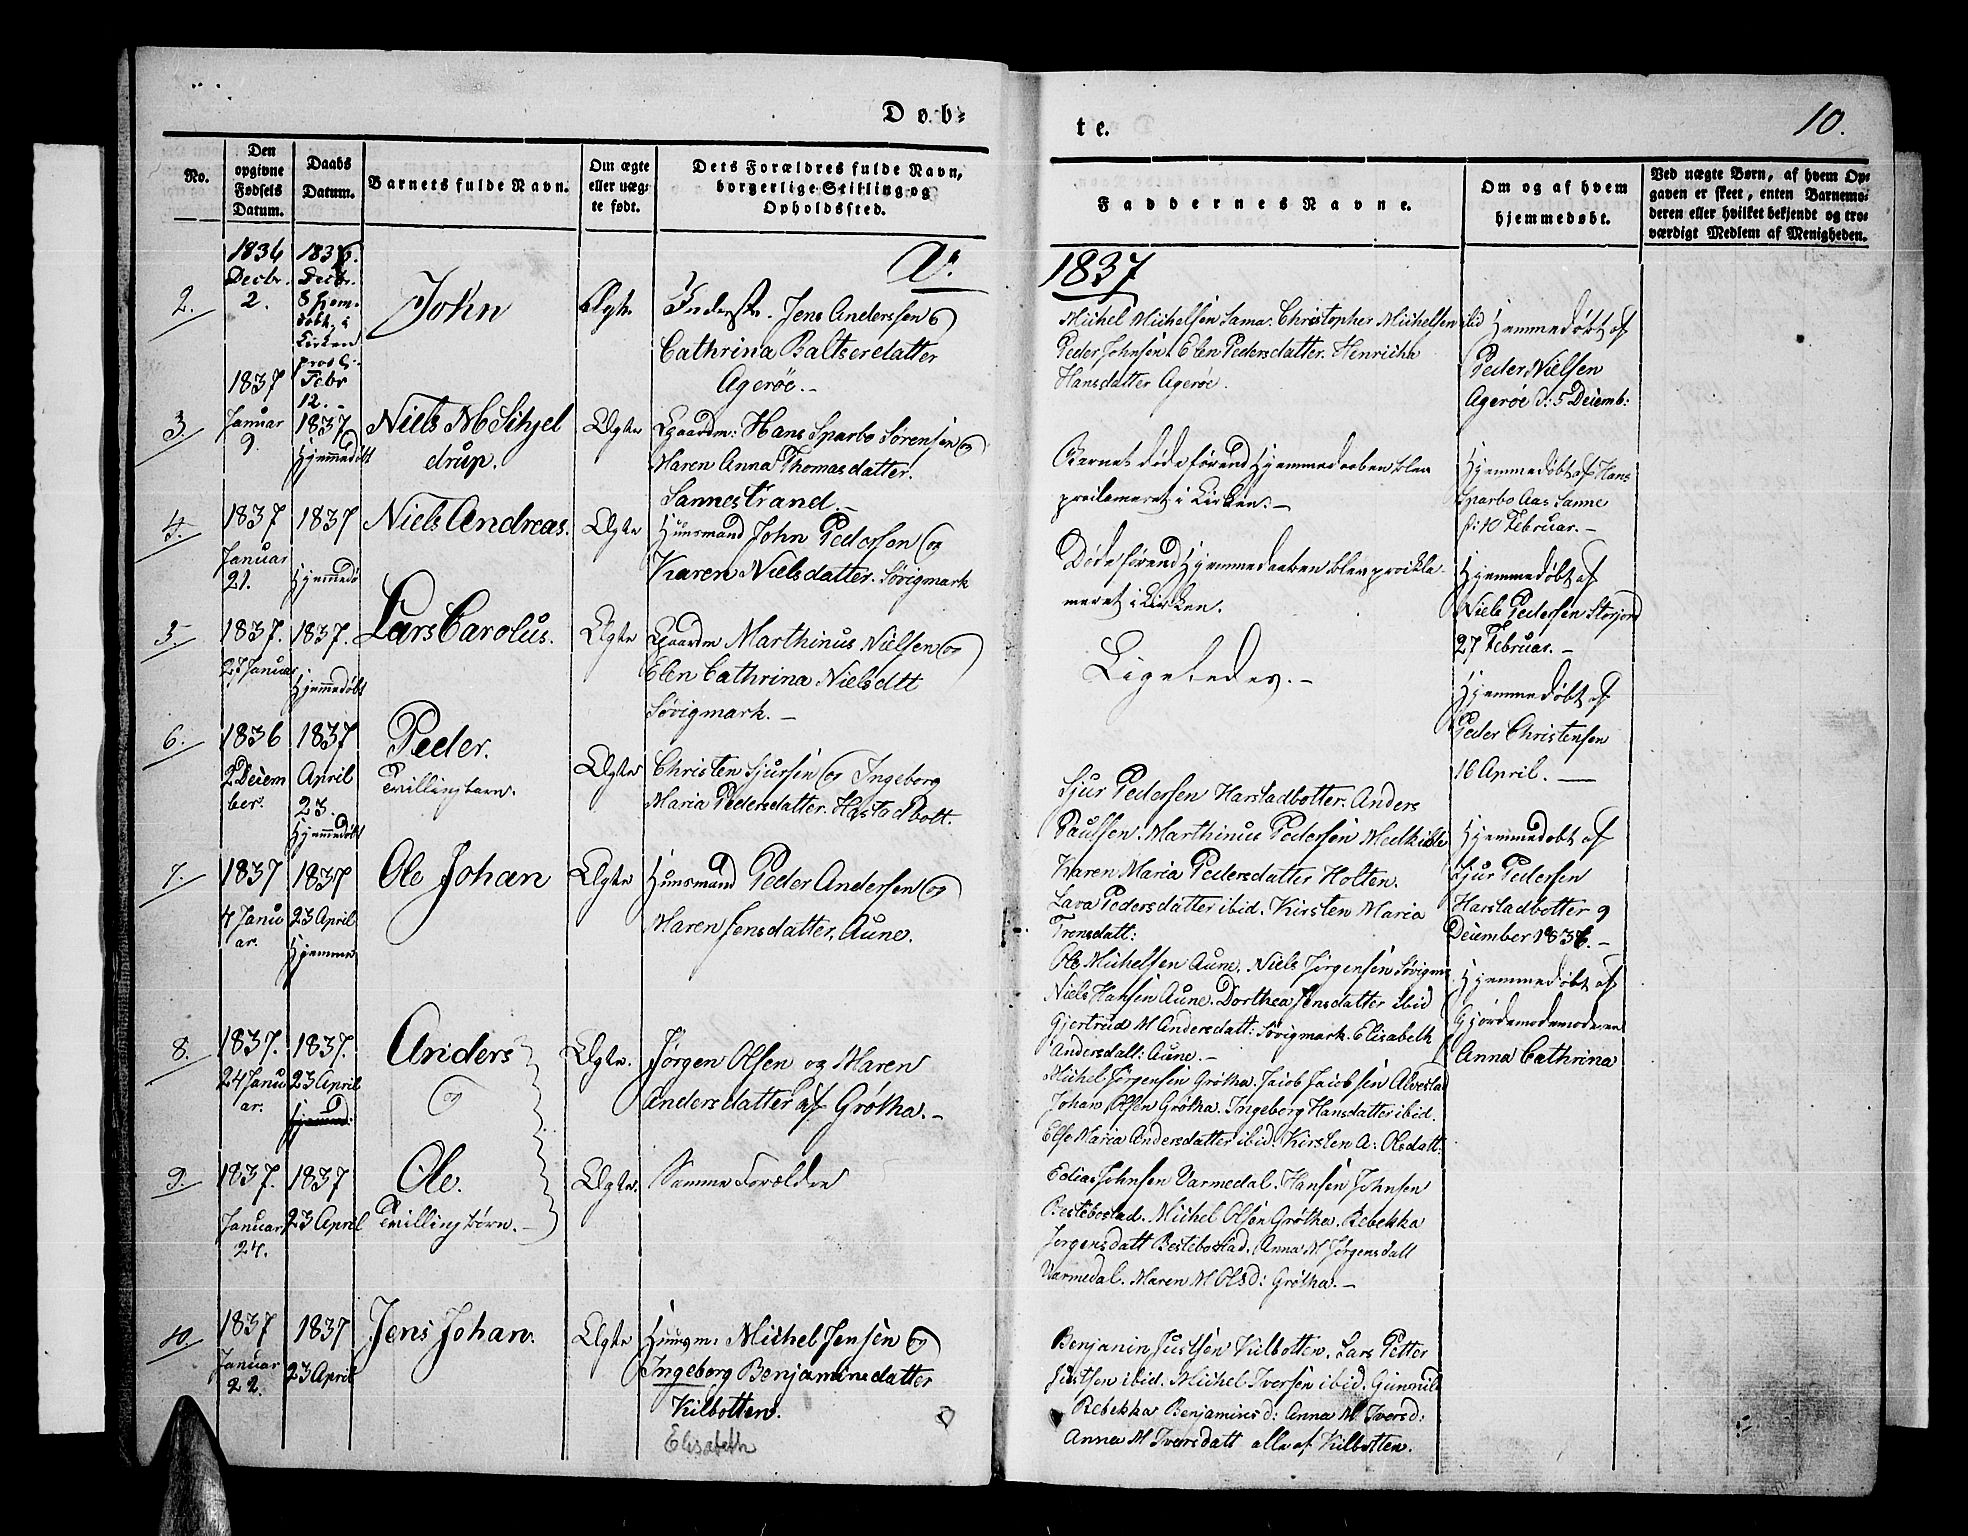 Døb-
te.
10.
No.
Den
opgivne
Fødsels
Datum.
Daabs
Datum.
Barnets fulde Navn.
Om ægte
eller uæg-
te født.
Dets Forældres fulde Navn,
borgerlige Stilling og
Opholdssted.
Faddernes Navne.
Om og af hvem
hjemmedøbt.
Ved uægte Børn, af hvem Op-
gaven er skeet, enten Barnemo-
deren eller hvilket bekjendt og tro-
værdigt Medlem af Menigheden.
Aº
1837
2.
1836
Decbr.
2.
1836.
Decbr.
8 hjem-
døbt, i
Kirken
procl.
Febr
12.
John
Ægte
Inderste. Jens Anderssen og
Cathrina Baltseredatter
Agerøe.
Michel Michelsen Sama. Christopher Michelsen ibid
Peder Johnsen. Elen Pedersdatter. Henricha
Hansdatter Agerøe.
Hjemmedøbt af
Peder Nielsen
Agerøe d: 5 Decemb:
3.
1837
Januar
9.
1837
Hjemmedøbt
Niels M Schjel
drup.
Ægte
Gaardm: Hans Sparbo Sørensen og
Maren Anna Thomasdatter.
Sannestrand.
Barnet døde førend Hjemmedaaben blev
proclameret i Kirken.
Hjemmedøbt af Hans
Sparbo Aas Sanne
d: 10 Februar.
4.
1837
Januar
21.
1837
Hjemmedø
Niels Andreas.
Ægte
Huusmand John Pedersen og
Karen Nielsdatter. Søvigmark
Døde førend Hjemmedaaben blev procla-
meret i Kirken.
Hjemmedøbt af
Niels Pedersen Storjord
27 Februar.
5.
1837.
27 Januar
1837.
Hjemmedøbt
Lars Carolus.
Ægte
Gaardm Marthinus Nielsen og
Elen Cathrina Nielsdtt
Søvigmark.
Ligeledes.
Hjemmedøbt af
Peder Christensen
16 April.
6.
1836
2 Decem
ber.
1837
April
23.
Hjemmedøbt
Peder.
Tvillingbarn.
Ægte
Christen Sjursen og Ingeborg
Maria Pedersdatter. Hastadbott.
Sjur Pedersen Harstadbotter. Anders
Paulsen. Marthinus Pedersen Medkible
Karen Maria Pedersdatter Holten.
Lava Pedersdatter ibid. Kirsten Maria
Trensdatt:
Hjemmedøbt af
Sjur Pedersen
Harstadbotter 9
December 1836.
7.
1837
4 Janu
ar.
1837
23 April
Hjemme
Ole Johan
Ægte
Huusmand Peder Andersen og
Maren Jensdatter, Aune.
Ole Michelsen Aune. Niels Jørgensen Søvigm
Niels Hansen Aune. Dorthea Jensdatter ibid
Gjertrud M Andersdatt: Søvigmark. Elisabeth
Andersdatt: Aune.
Hjemmedøbt af
Gjordemodermoderen
Anna Cathrina
8.
1837.
24 Janu
ar.
1837.
23 April
Hjemmed.
Anders
og
Ægte.
Jørgen Olsen og Maren
Andersdatter af Grøtha.
Michel Jørgensen Grøtha. Jacob Jacobsen Alvestad
Johan Olsen Grøtha. Ingeborg Hansdatter ibid.
Else Maria Andersdatter ibid. Kirsten A: Olsdatt:
9.
1837.
Januar
24.
1837
23 April
Ole.
Tvillingbørn.
Ægte.
Samme Forældre
Edias Johnsen Varmedal. Hansen Johnsen
Bestebostad. Michel Olsen Grøtha. Rebekka
Jørgensdatt Bestebostad. Anna M Jørgensdatt
Varmedal. Maren M Olsd: Grøtha.
10.
1837
Januar
22.
1837
23 April
Jens Johan.
Ægte
Huusm: Michel Jensen og
Ingeborg Benjaminsdatter
Kilbotten.
Elisabeth
Benjamin Justsen Kilbotten. Lars Petter
Justsen ibid. Michel Iversen ibid. Gunnild
Rebekka Benjaminsd: Anna M Iversd:
Anna M Iversdatt alle af Kilbotten.